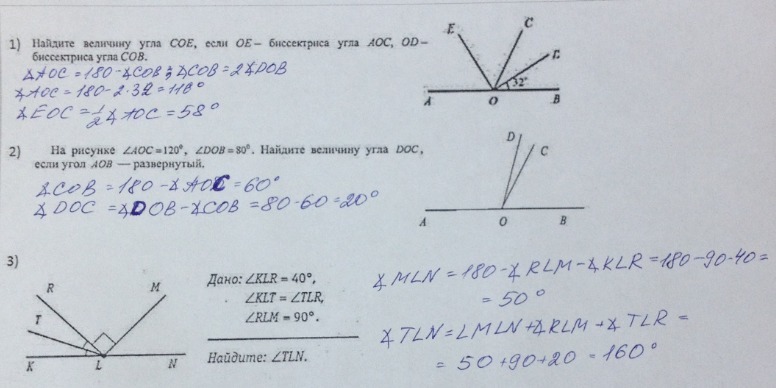 1) Найдите величину угла COE, если OE– биссектриса угла AOC, OD–
биссектриса угла COB.
∡AOC = 180 - ∡COB; ∡COB = 2∡DOB
∡AOC = 180 - 2·32 = 116°
∡EOC = 1/2 ∡AOC = 58°
E
C
D
32°
A
O
B
2) На рисунке ∠AOC=120°, ∠DOB=80°. Найдите величину угла DOC,
если угол AOB — развернутый.
∡COB = 180 - ∡AOC = 60°
∡DOC = ∡DOB - ∡COB = 80 - 60 = 20°
D
C
A
O
B
3)
R
M
T
K
L
N
Дано: ∠KLR = 40°,
∠KLT = ∠TLR,
∠RLM = 90°.
Найдите: ∠TLN.
∡MLN = 180 - ∡RLM - ∡KLR = 180 - 90 - 40 =
= 50°
∡TLN = ∠MLN + ∡RLM + ∡TLR =
= 50 + 90 + 20 = 160°